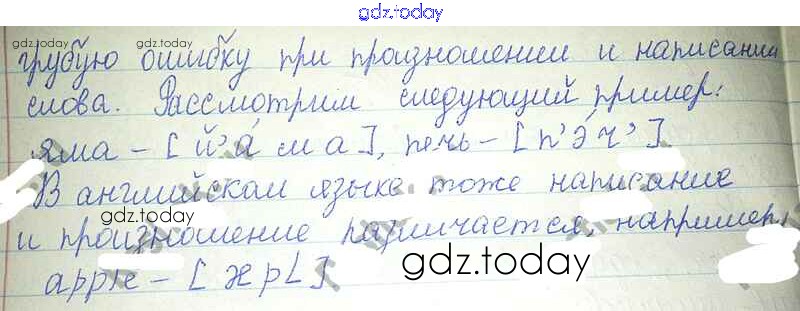 gdz.today
грубую ошибку при произношении и написании
gdz.today
gdz.today
слова. Рассмотрим следующий пример:
яма - [й'а́ м а], печь - [п'э́ч']
В английском языке тоже написание
gdz.today
и произношение различается, например,
apple - [æpL]
gdz.today